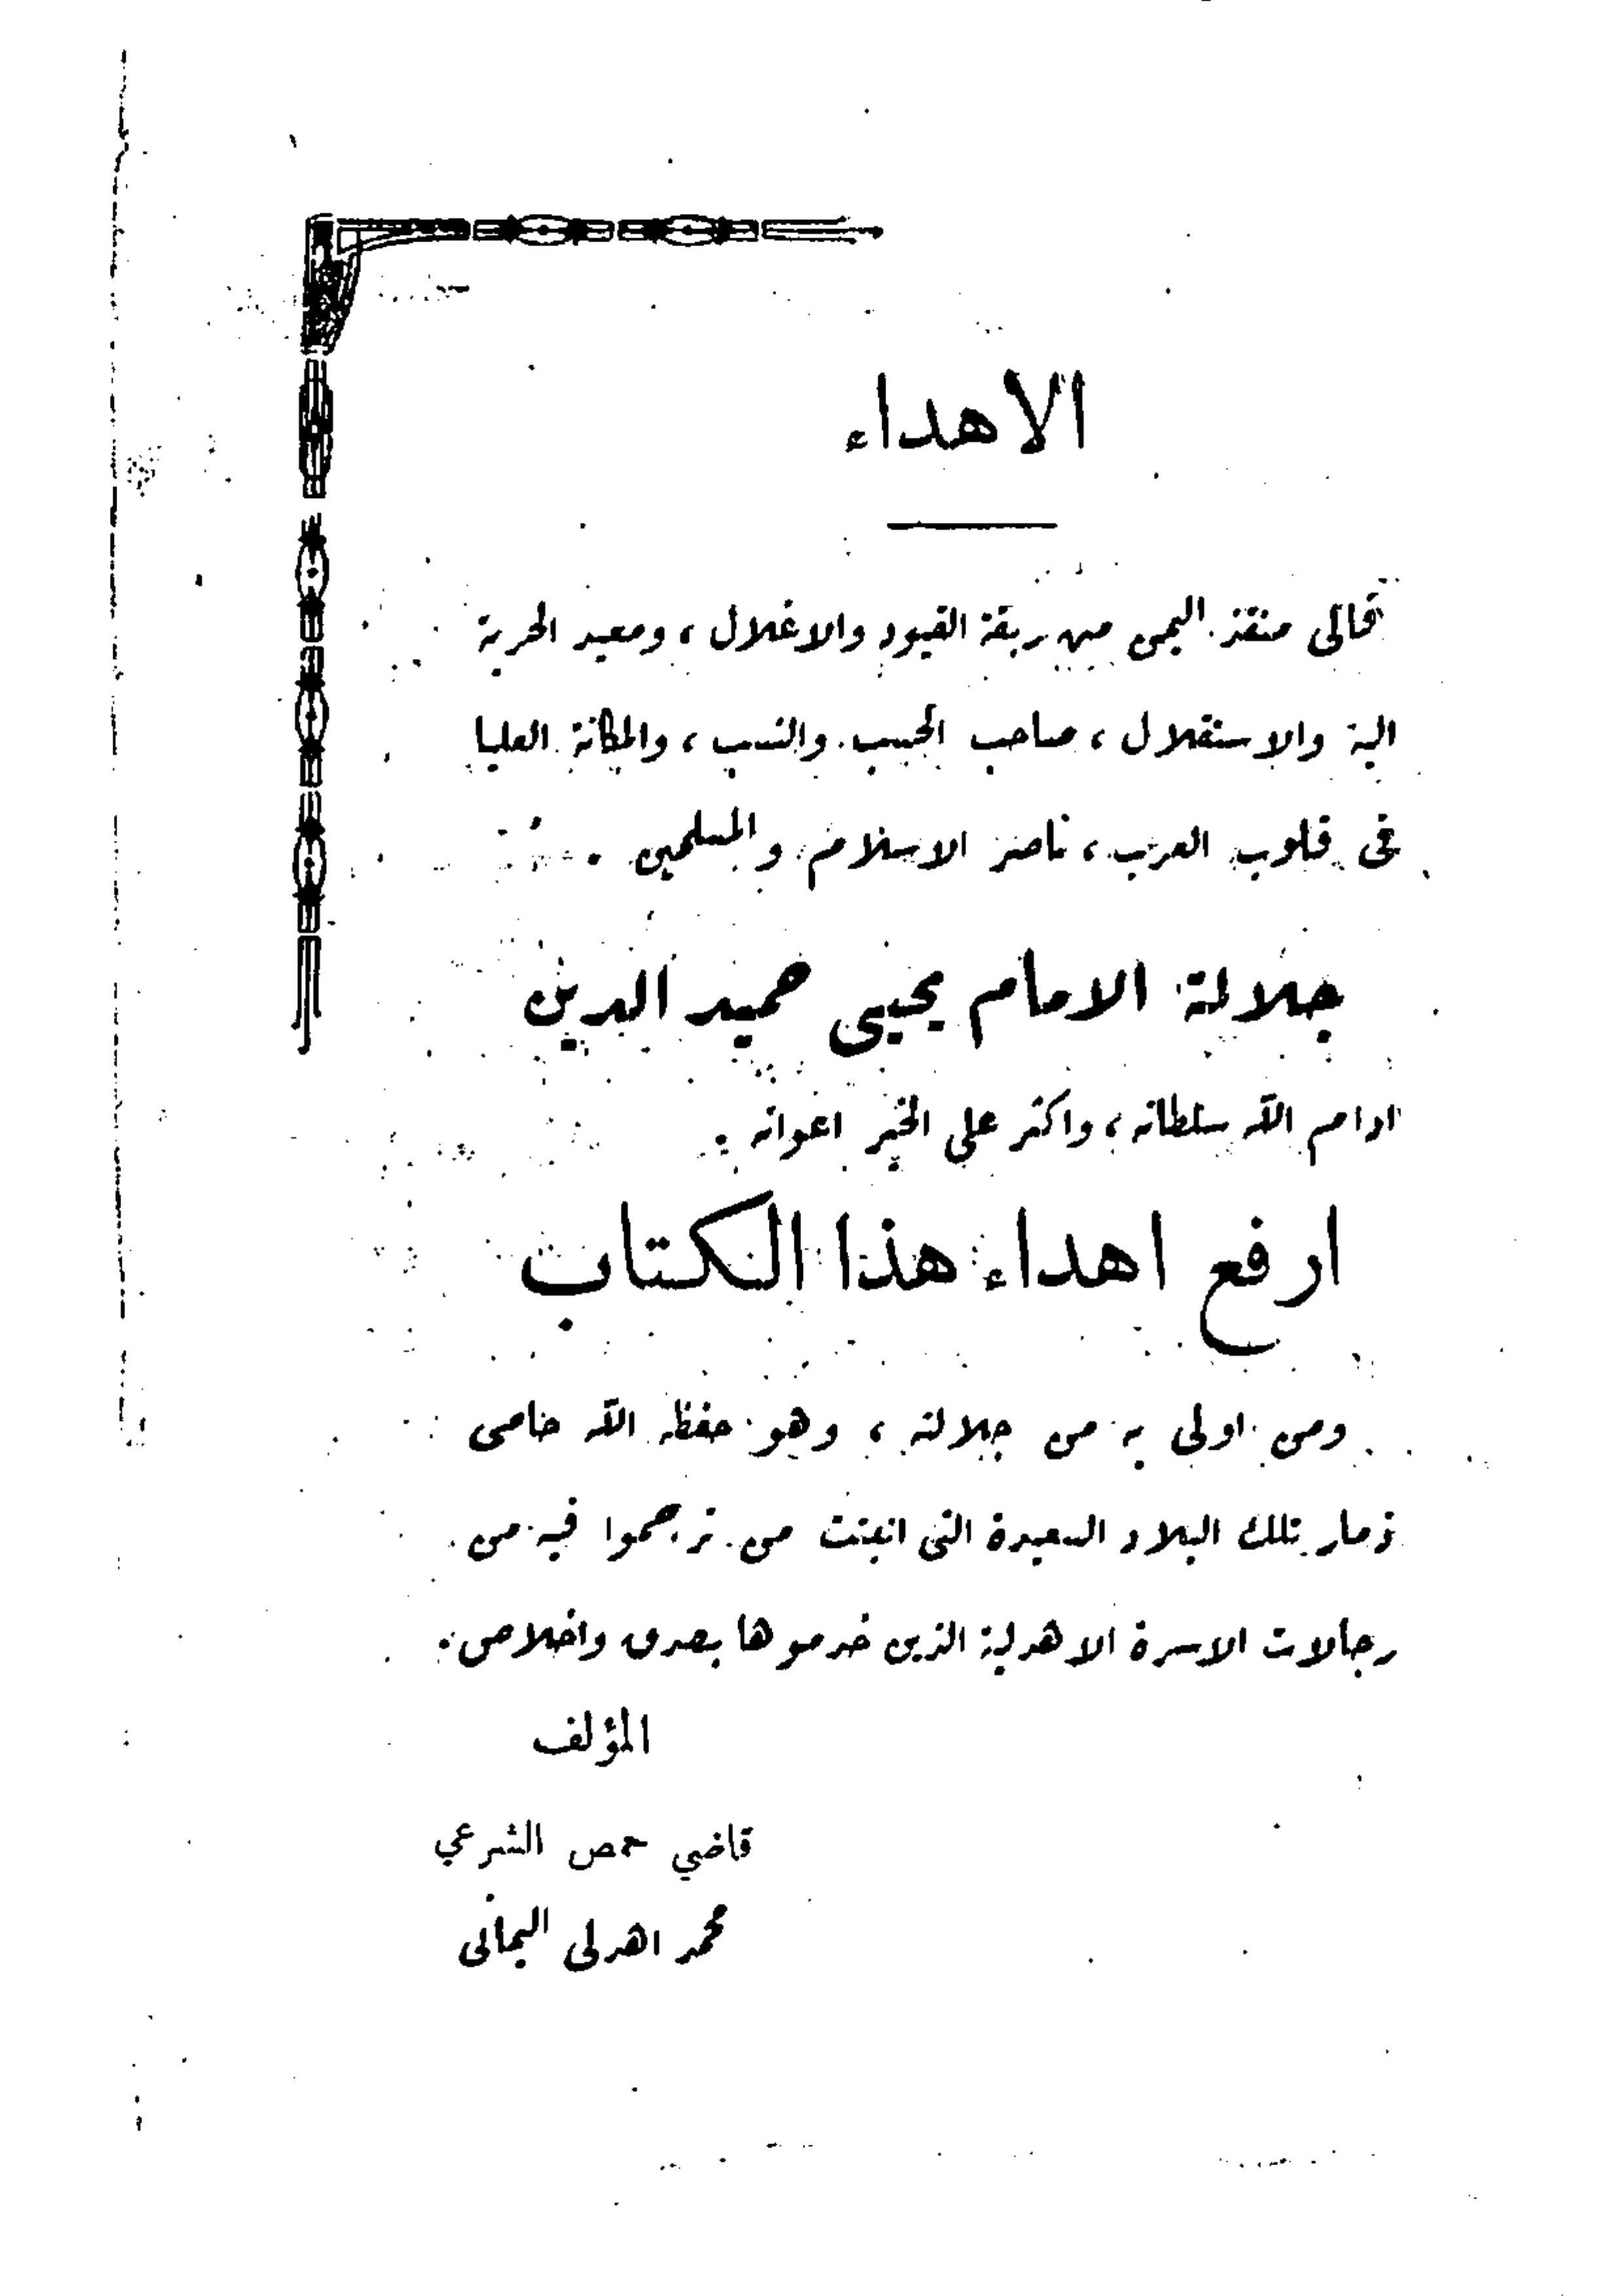 الاهداء
فالى منقذ اليمن من ربقة القيود والاغلال ، ومعيد الحرية
اليه والاستقلال ، صاحب الحسب والنسب ، والمكانة العليا
فى قلوب العرب ، ناصر الاسلام والمسلمين .
جلالة الامام يحيى حميد الدين
ادام الله سلطانه ، واكثر على الخير اعوانه .
ارفع اهداء هذا الكتاب
ومن اولى به من جلالته ، وهو حفظه الله حامى
ذمار تلك البلاد السعيدة التى انبتت من ترجموا فيه من
رجالات الاسرة الاهدلية الذين خدموها بصدق واخلاص .
المؤلف
قاضي حمص الشرعي
محمد اهدلى اليمانى